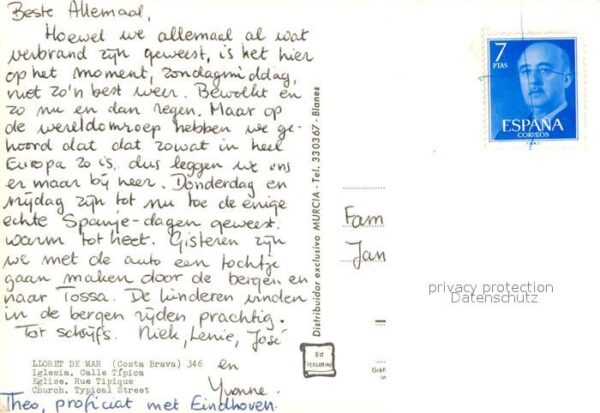 Beste Allemaal,
Hoewel we allemaal al wat
verbrand zijn geweest, is het hier
op het moment, zondagmiddag,
niet zo'n best weer. Bewolkt en
zo nu en dan regen. Maar op
de wereldomroep hebben we ge-
hoord dat dat zowat in heel
Europa zo is, dus leggen we ons
er maar bij neer. Donderdag en
vrijdag zijn tot nu toe de enige
echte Spanje-dagen geweest.
warm tot heet. Gisteren zijn
we met de auto een tochtje
gaan maken door de bergen en
naar Tossa. De kinderen vinden
in de bergen rijden prachtig.
Tot schrijfs. Niek, Lenie, José
en
Yvonne.
Theo, proficiat met Eindhoven.
LLORET DE MAR (Costa Brava) 346
Iglesia. Calle Típica
Eglise. Rue Tipique
Church. Typical Street
Distribuidor exclusivo MURCIA - Tel. 330367 - Blanes
Ed
PERGAMINO
7
PTAS
ESPAÑA
CORREOS
Fam
Jan
privacy protection
Datenschutz
Gráfi
in